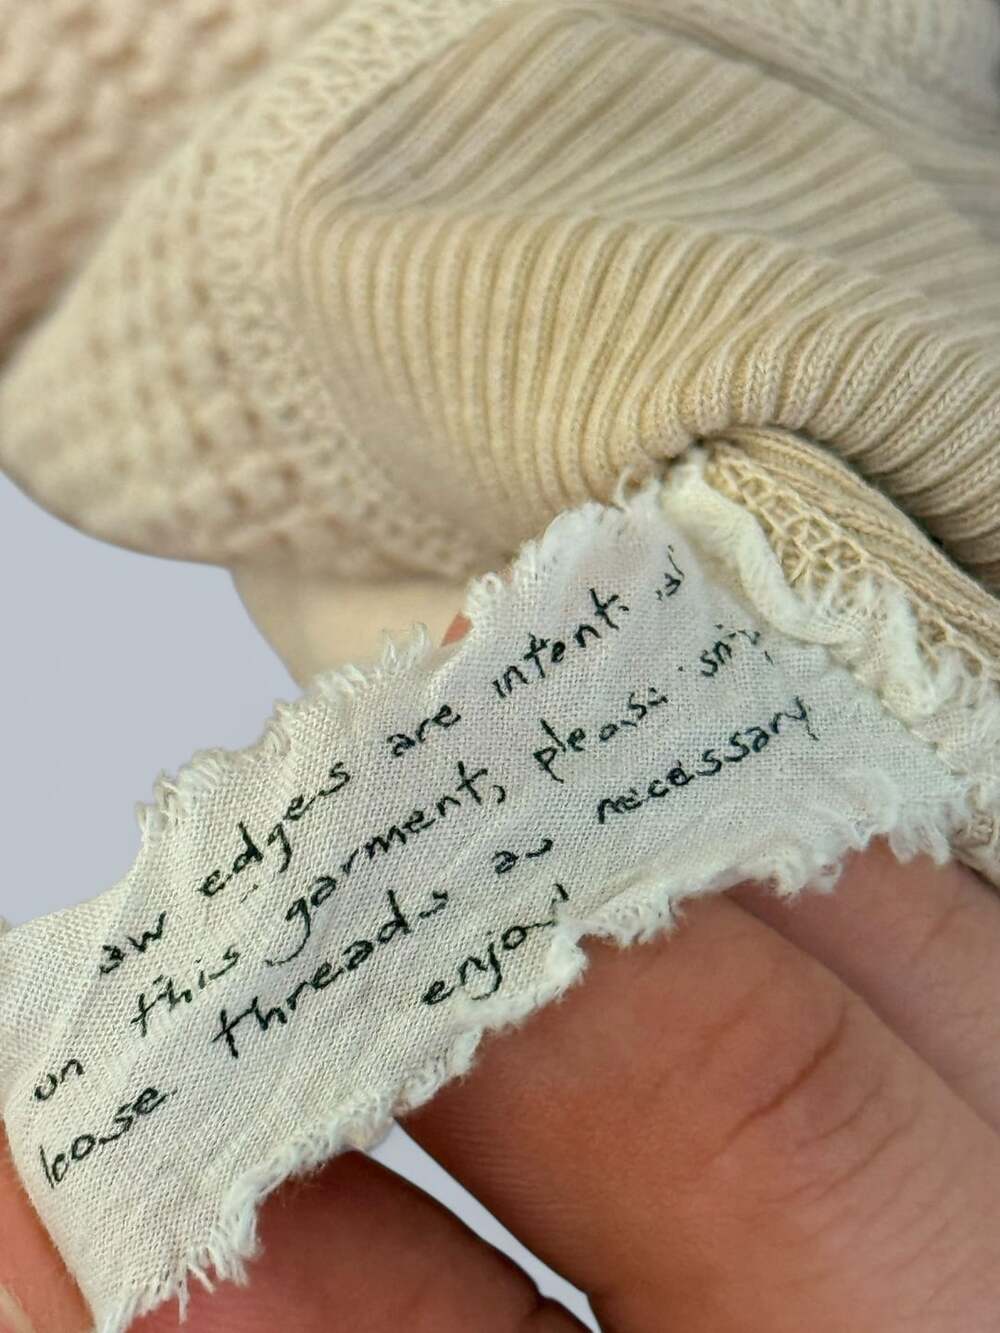 aw edges are intent
on this garment, please snip
loose threads as necessary
enjoy!